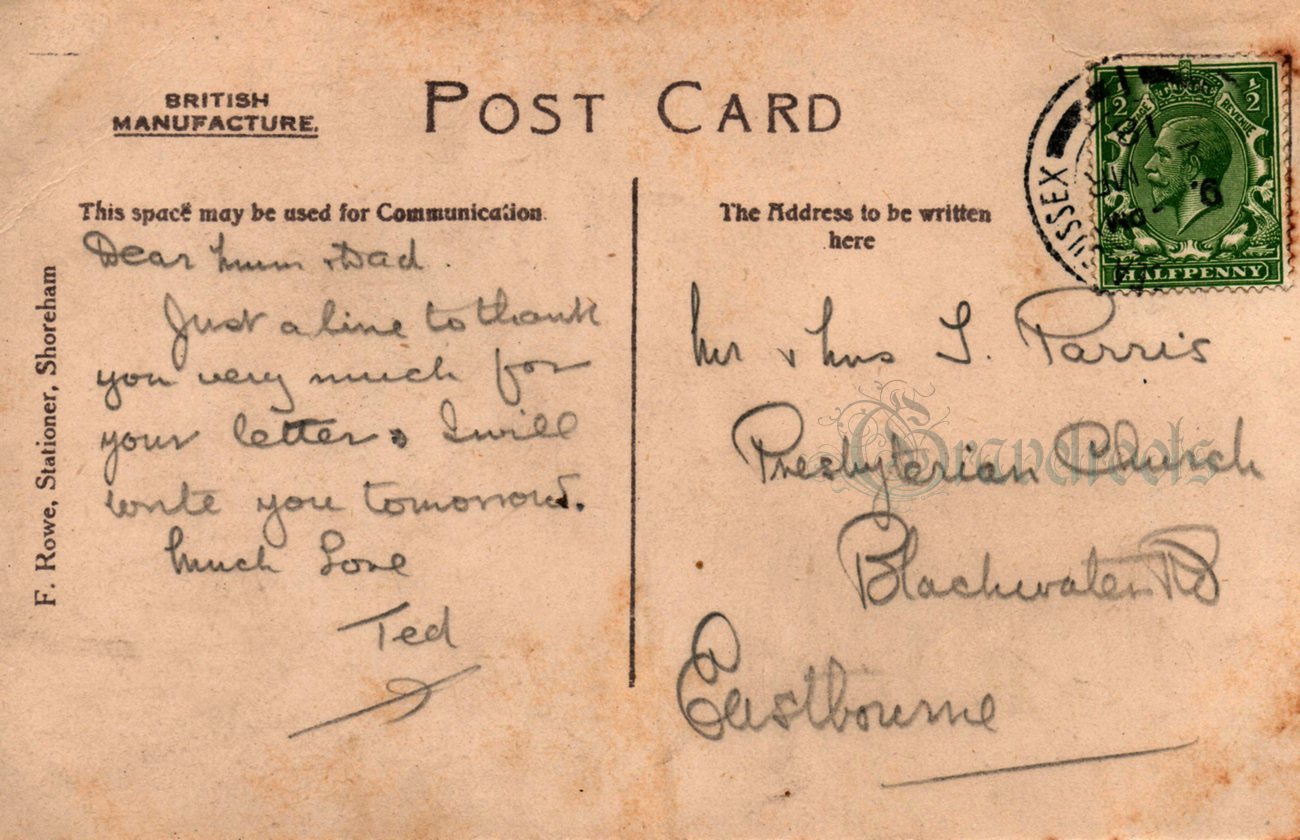 BRITISH
MANUFACTURE.
POST CARD
This space may be used for Communication.
The Address to be written
here
F. Rowe, Stationer, Shoreham
Dear Mum & Dad.
Just a line to thank
you very much for
your letter & I will
write you tomorrow.
Much Love
Ted
Mr & Mrs T. Parris
Presbyterian Church
Blackwater Rd
Eastbourne
½ ½
REVENUE
HALFPENNY
SUSSEX
Gravelroots